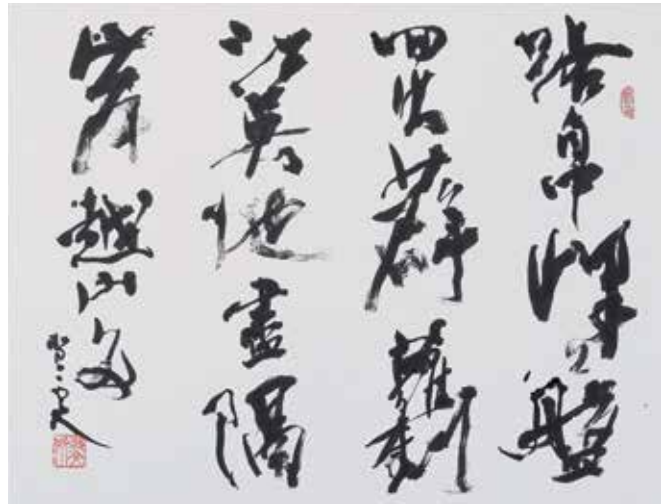 路自中峰上盤
回出薜蘿到
江吳地盡隔
岸越山多